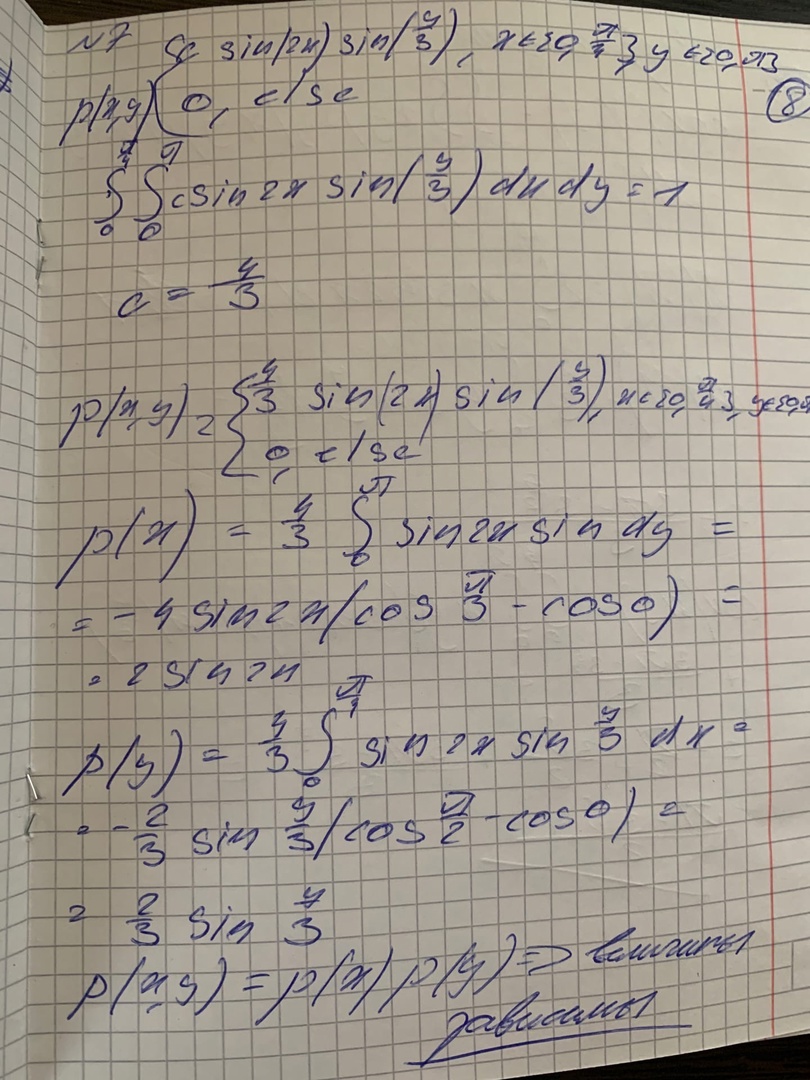 №7 { c sin(2x) sin(y/3), x∈[0, π/4], y∈[0, π]
p(x,y) { 0, else
8
∫₀^{π/4} ∫₀^{π} c sin 2x sin(y/3) dx dy = 1
c = 4/3
p(x,y) = { 4/3 sin(2x) sin(y/3), x∈[0, π/4], y∈[0, π
0, else
p(x) = 4/3 ∫₀^{π} sin 2x sin dy =
= -4 sin 2x (cos π/3 - cos 0) =
= 2 sin 2x
p(y) = 4/3 ∫₀^{π/4} sin 2x sin y/3 dx =
= -2/3 sin y/3 (cos π/2 - cos 0) =
= 2/3 sin y/3
p(x,y) = p(x) p(y) => величины
зависимы